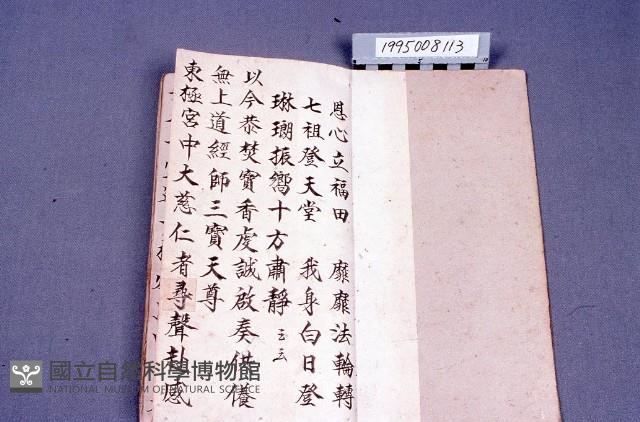 1995008113
恩心立福田　靡靡法輪轉
七祖登天堂　我身白日登
琳瑯振嚮十方肅靜 玉云
以今恭焚寶香虔誠啟奏供養
無上道經師三寶天尊
東極宮中大慈仁者尋聲赴感
國立自然科學博物館
NATIONAL MUSEUM OF NATURAL SCIENCE